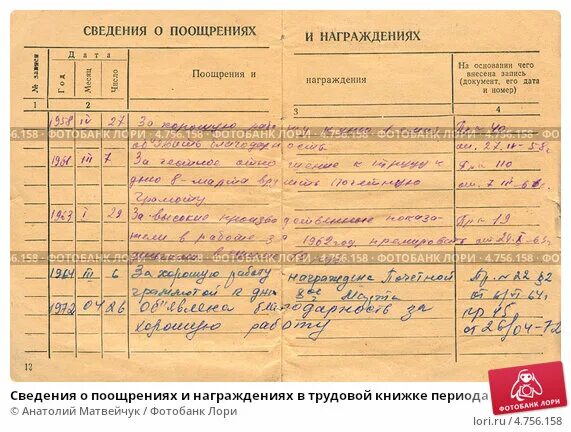 СВЕДЕНИЯ О ПООЩРЕНИЯХ И НАГРАЖДЕНИЯХ
№ записи
Дата
Год
Месяц
Число
Поощрения и награждения
На основании чего внесена запись (документ, его дата и номер)
1 2 3 4
1958 IV 27 За хорошую
объявить благодарность
1961 III 7 За честное отношение к труду к
дню 8-марта вручить почетную
грамоту
Пр. 110
1963 I 29 За высокие производственные показа-
тели в работе за 1962 год премировать
Пр. 19
1964 III 6 За хорошую работу награждена Почетной
грамотой к дню 8го Марта
1972 04 26 Объявлена благодарность за
хорошую работу
пр 45
от 26/04-72
12
156 - ФОТОБАНК ЛОРИ - 4.756.158 - ФОТОБАНК ЛОРИ - 4.756.158 - ФОТОБАНК ЛОРИ
ФОТОБАНК ЛОРИ
Сведения о поощрениях и награждениях в трудовой книжке периода
© Анатолий Матвейчук / Фотобанк Лори
lori.ru / 4.756.158